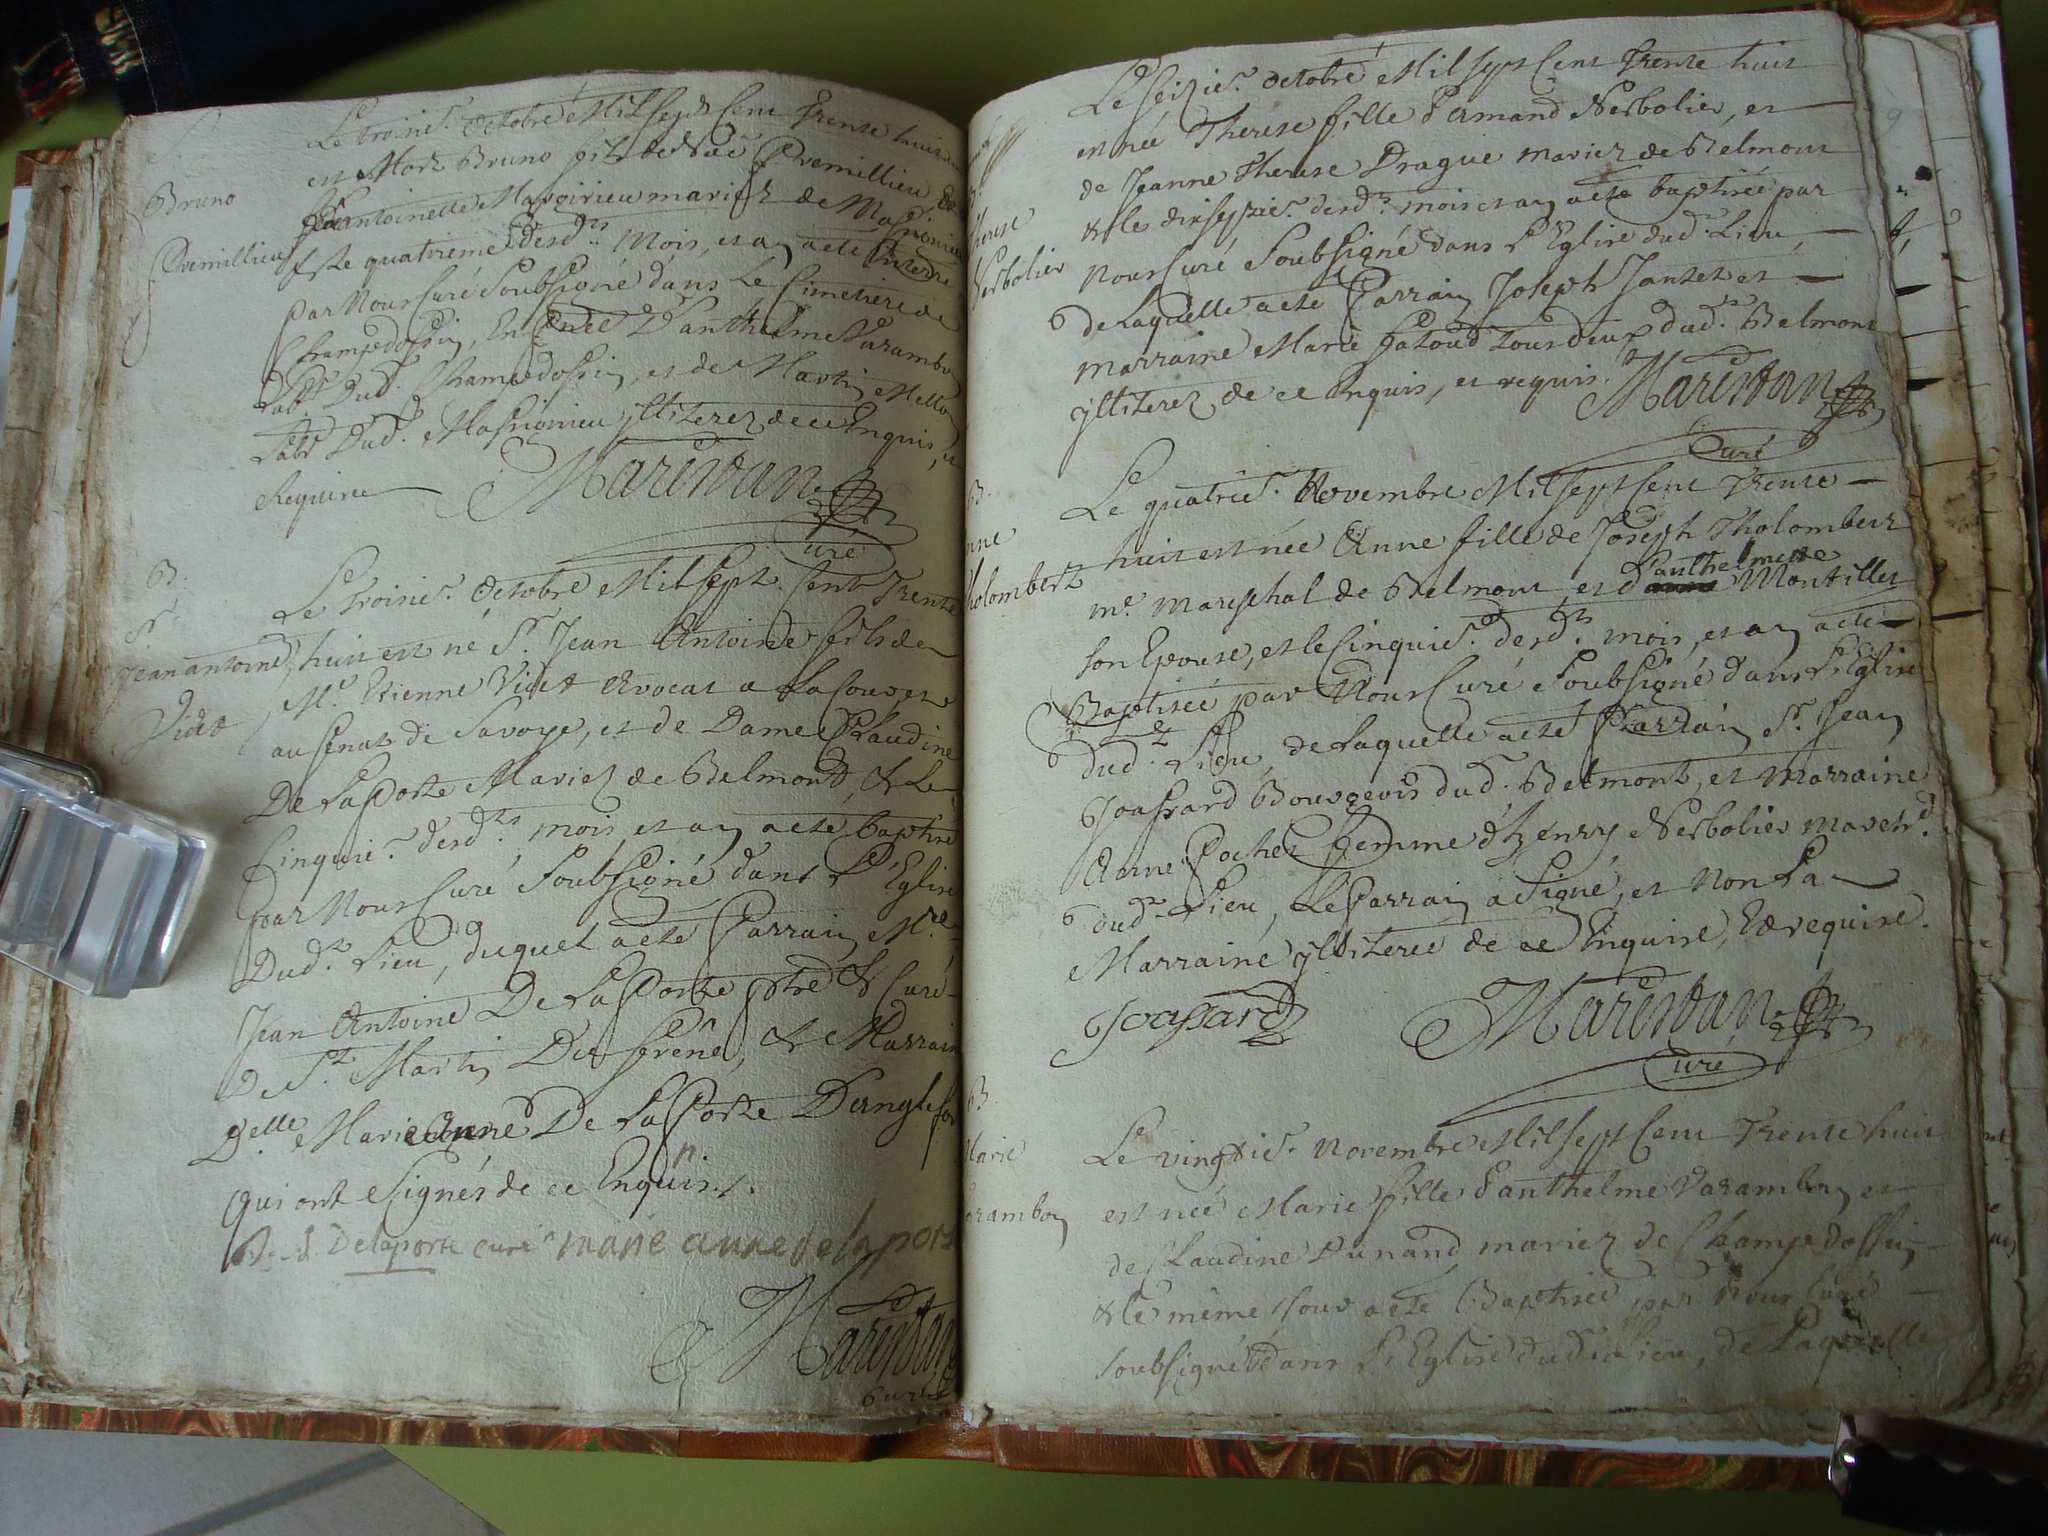 Le troisie. Octobre Mil Sept Cent Trente huit
est Mort Bruno fils de Premillieu
Antoinette maries de
Este quatrieme desd.ts Mois, et an a ete Enterré
par Nous Curé Soubsigné dans Le Cimetiere de
Champdossin, En D'anthelme Varambon
Lab.r Dud. Champdossin, et de Martin
Lab.r Dud. jlliterez de ce Enquis, et
Requis
Marindan
Curé
Bruno
Premillieu
B.
Sr.
Jean antoine
Videt
Le troisie. Octobre Mil Sept Cent Trente
huit est né Sr. Jean Antoine fils de
Mr. Etienne Videt Avocat a La Cour et
au Senat de Savoye, et de Dame Claudine
De Laporte Mariez de Belmont, & Le
Cinquie. desd.ts mois, et an a eté baptisé
par Nous Curé Soubsigné dans L'Eglise
Dud.t Lieu, duquel a eté Parrain M.re
Jean Antoine De Laporte ptre & Curé
De St. Martin Du frêne, & Marraine
D.elle Marie Anne De Laporte
qui ont Signés de ce Enquis.
Delaporte curé marie anne delaporte
Marindan
Curé
Le Seizie. Octobre Mil Sept Cent Trente huit
est née Therese fille d'Amand Nerbolier, et
de Jeanne Therese Drague mariez de Belmont
& le dixseptie. desd.ts mois et an a eté baptisée par
Nous Curé Soubsigné dans L'Eglise dud. Lieu,
de Laquelle a eté Parrain Joseph Jantet et
marraine Marie tous deux dud.t Belmont
jlliterez de ce Enquis, et requis.
Marindan
Curé
B.
Therese
Nerbolier
B.
Anne
Tholombert
Le quatrie. Novembre Mil Sept Cent Trente
huit est née Anne fille de Joseph Tholombert
me. Mareschal de Belmont, et d'anthelmette Montillet
Son Epouse, et le Cinquie. desd.ts mois, et an a eté
Baptisée par Nous Curé Soubsigné dans L'Eglise
dud.t Lieu, de Laquelle a eté Parrain Sr. Jean
Joassard Bourgeois dud.t Belmont, et Marraine
Anne Pochet femme d'henry Nerbolier march.d
dud.t Lieu, Le Parrain a Signé, et Non La
Marraine jlliteree de ce Enquise, Et requise.
Joassard
Marindan
Curé
B.
Marie
Varambon
Le vingtie. Novembre Mil Sept Cent Trente huit
est née Marie fille d'anthelme Varambon et
de Claudine Dunand mariez de Champdossin
& le même jour a eté Baptisée par Nous Curé
soubsigné dans L'Eglise dud.t Lieu, de Laquelle